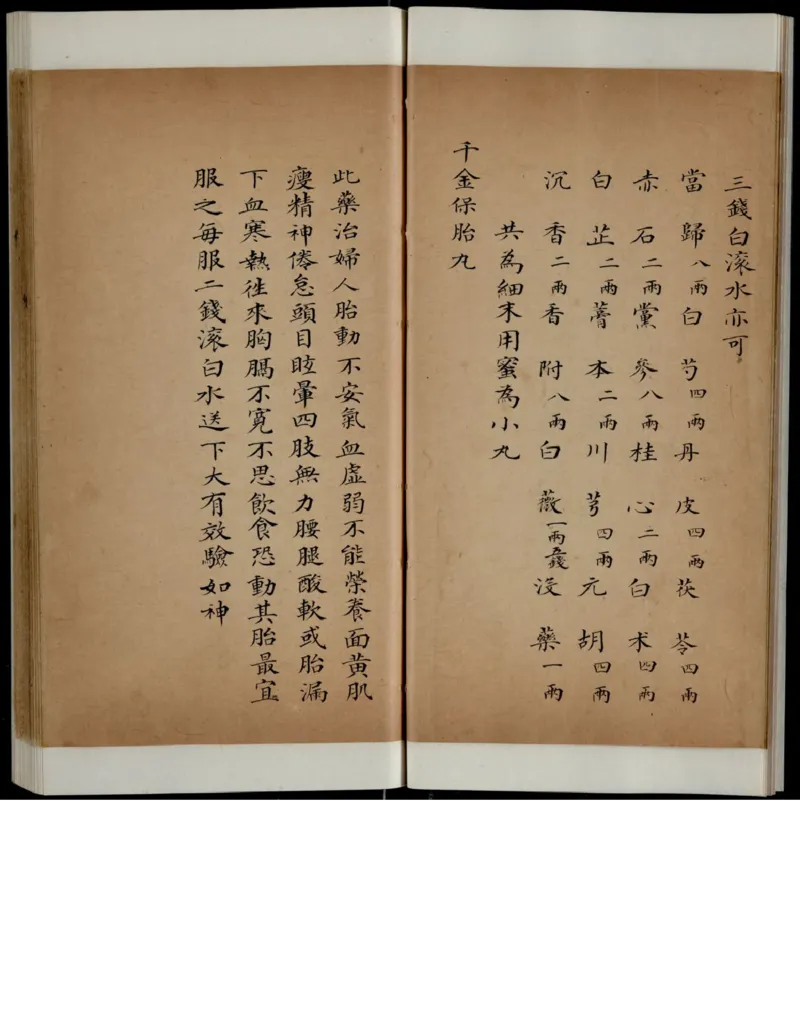 三錢白滾水亦可
當歸八兩白芍四兩丹皮四兩茯苓四兩
赤石二兩黨參八兩桂心二兩白朮四兩
白芷二兩藁本二兩川芎四兩元胡四兩
沉香二兩香附八兩白薇一兩五錢沒藥一兩
共為細末用蜜為小丸
千金保胎丸
此藥治婦人胎動不安氣血虛弱不能榮養面黃肌
瘦精神倦怠頭目眩暈四肢無力腰腿酸軟或胎漏
下血寒熱徃來胸膈不寬不思飲食恐動其胎最宜
服之每服二錢滾白水送下大有效驗如神